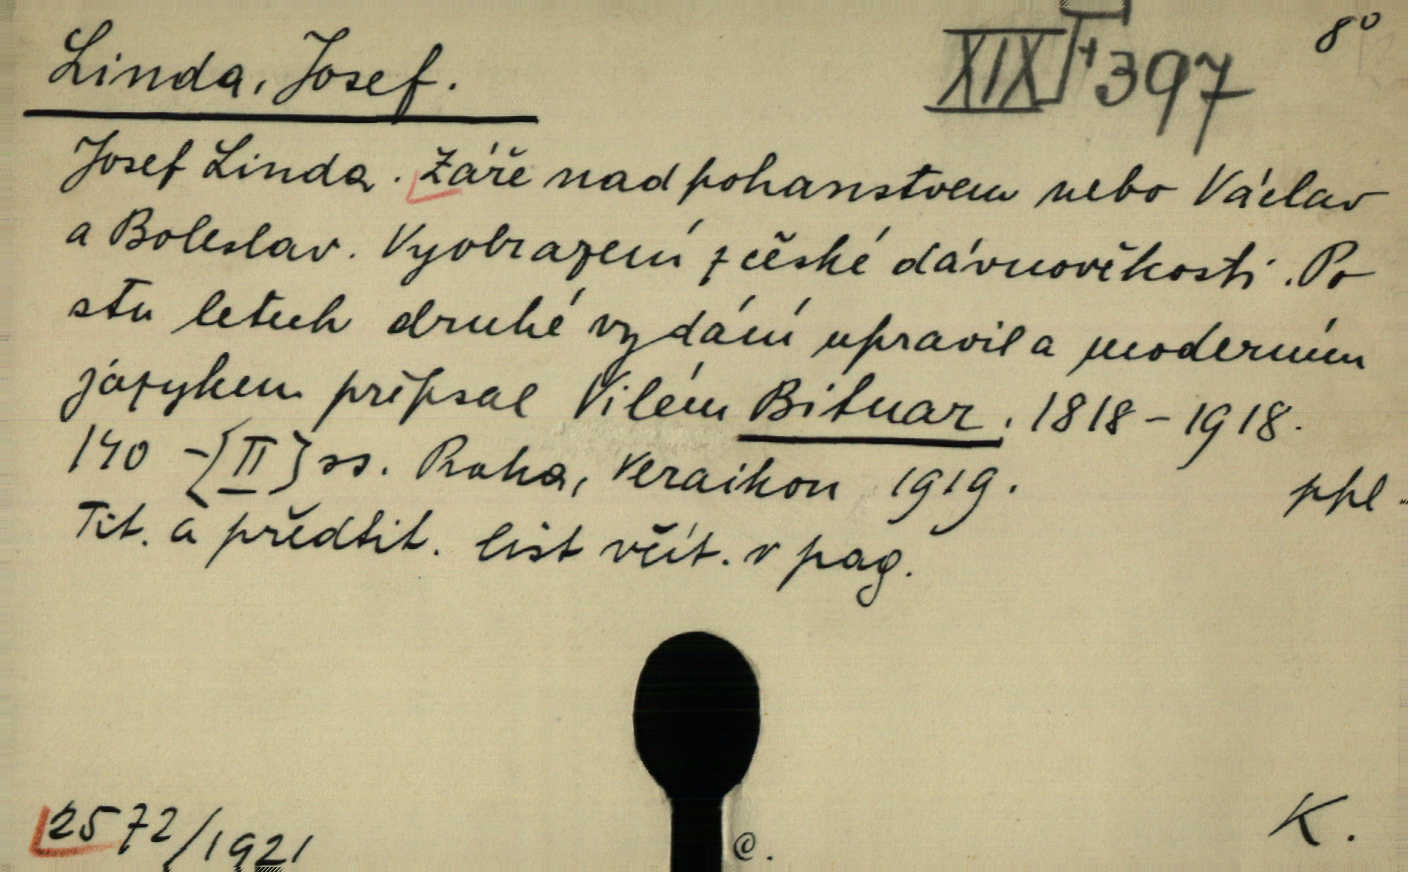 Linda, Josef.
XIX 397
8°
Josef Linda. Záře nad pohanstvem nebo Václav
a Boleslav. Vyobrazení z české dávnověkosti. Po
stu letech druhé vydání upravil a moderním
jazykem přepsal Vilém Bitnar. 1818-1918.
140 -[II] ss. Praha, Veraikon 1919.
ppl.
Tit. a předtit. list včít. v pag.
2572/1921
K.